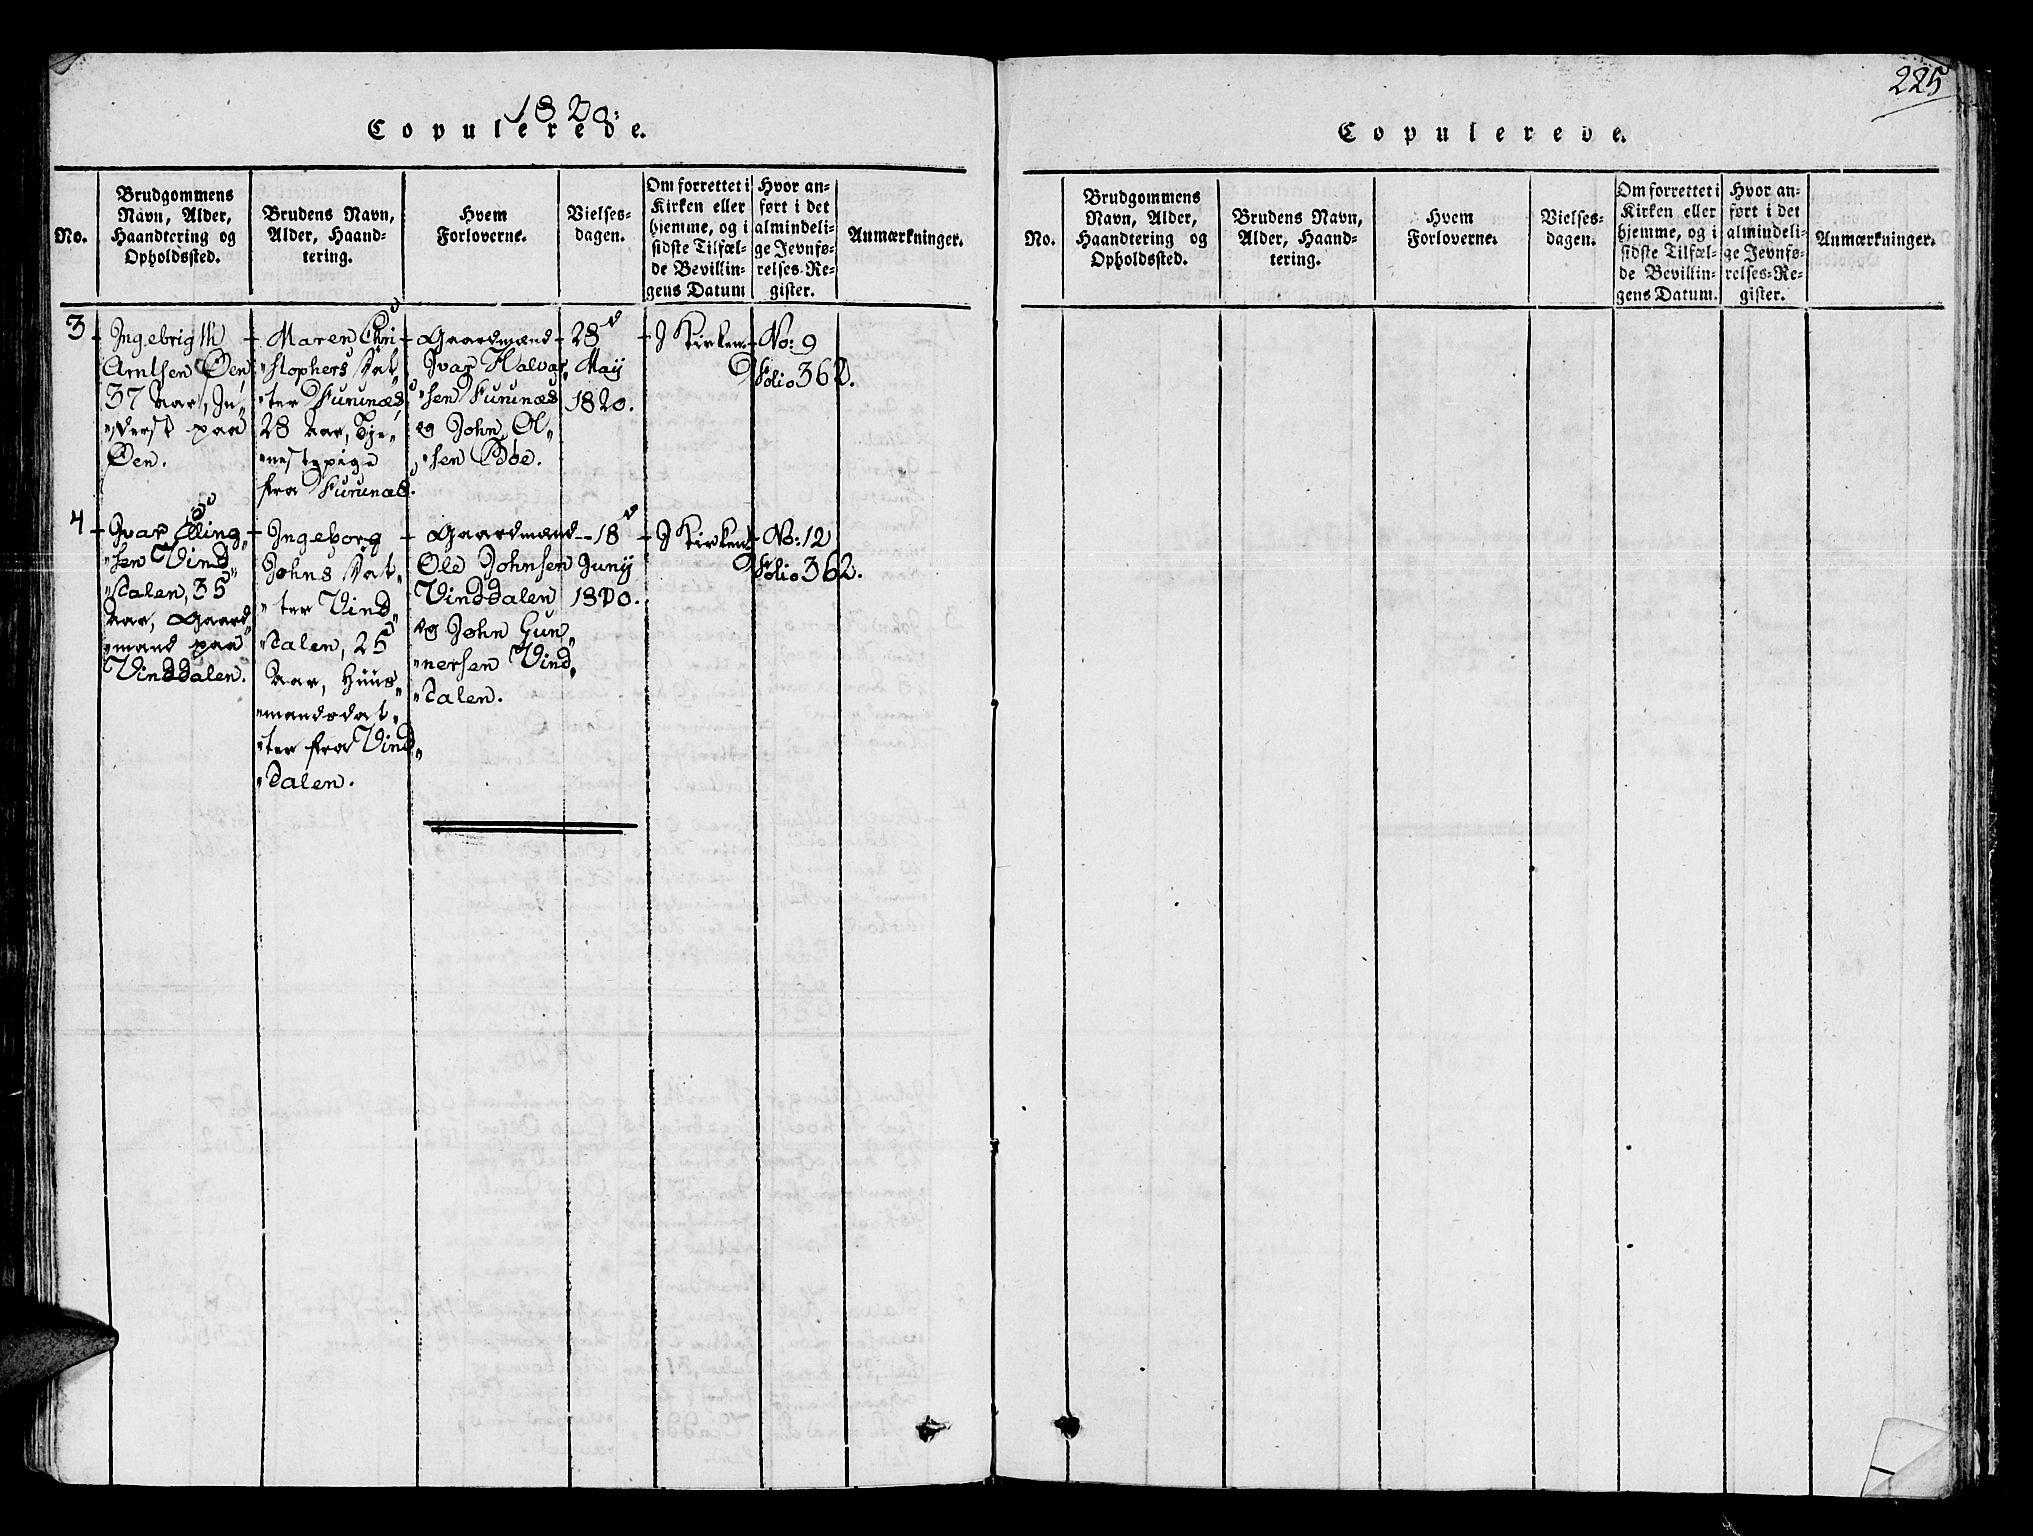 1820.
Copulerede.
No.
Brudgommens
Navn, Alder,
Haandtering og
Opholdssted.
Brudens Navn,
Alder, Haand-
tering.
Hvem
Forloverne.
Vielses-
dagen.
Om forrettet i
Kirken eller
hjemme, og i
sidste Tilfæl-
de Bevillin-
gens Datum
Hvor an-
ført i det
almindeli-
ge Jevnfø-
relses-Re-
gister.
Anmærkninger.
3
Ingebrigth
Arntsen Øen
37 Aar, In-
derst paa
Øen.
Maren Chri
stophers Dat-
ter Furunæs,
28 Aar, Tje-
nestepige
fra Furunæs.
Gaardmænd
Ivar Halvor
sen Furunæs
og John Ol-
sen Bøe.
28
May
1820.
I Kirken
No: 9
Folio 362.
4
Ivar Elling
sen Vind
dalen, 35
Aar, Gaard
mand paa
Vinddalen.
Ingeborg
Johns Dat-
ter Vind
dalen, 25
Aar, Huus
mandsdat-
ter fra Vind
dalen.
Gaardmænd
Ole Johnsen
Vinddalen
og John Gun
nersen Vind
dalen.
18
Juny
1820.
I Kirken
No: 12
Folio 362.
225
Copulerede.
No.
Brudgommens
Navn, Alder,
Haandtering og
Opholdssted.
Brudens Navn,
Alder, Haand-
tering.
Hvem
Forloverne.
Vielses-
dagen.
Om forrettet i
Kirken eller
hjemme, og i
sidste Tilfæl-
de Bevillin-
gens Datum.
Hvor an-
ført i det
almindeli-
ge Jevnfø-
relses-Re-
gister.
Anmærkninger.